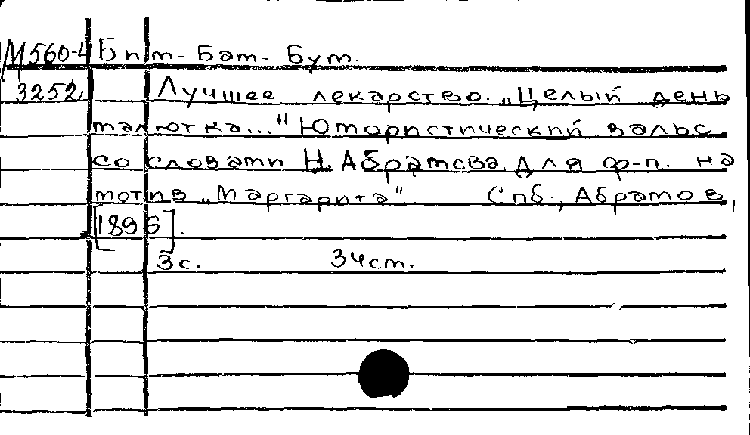 М560-4 Бпт- Бат- Бут.
3252 Лучшее лекарство. „Целый день
малютка..." Юмористический вальс
со словами Н. Абрамова. Для ф-п. на
мотив „Маргарита" Спб., Абрамов,
[1896].
3с. 34ст.